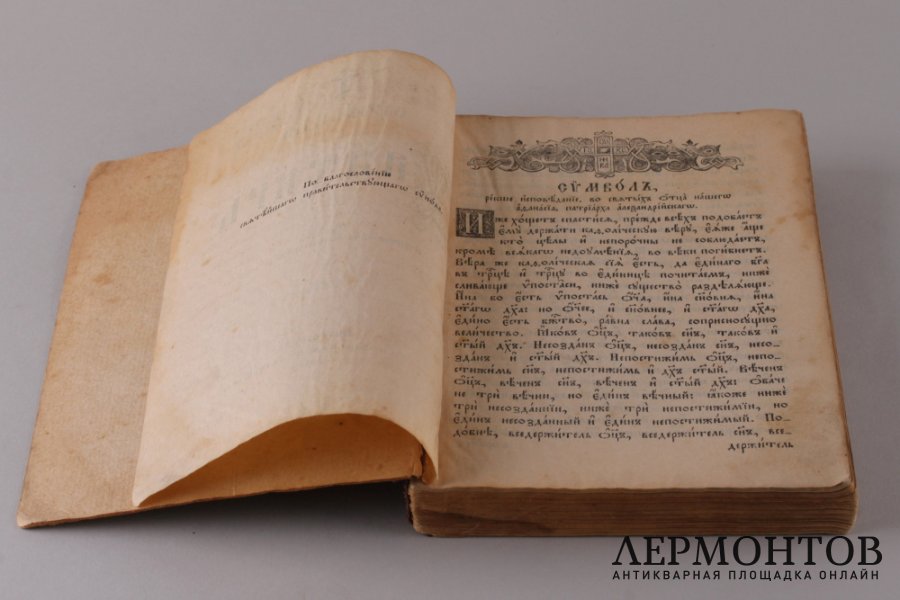 По благословенїю
свѧтѣйшагѡ правительствующагѡ сѷнода.
СѶМВО́ЛЪ,
рекше и҆сповѣ́данїе, во свѧты́хъ ѻ҆тца̀ на́шегѡ
а҆ѳана́сїа, патрїа́рха а҆леѯандрі́йскагѡ.
И҆́же хо́щетъ спасти́сѧ, пре́жде всѣ́хъ подоба́етъ
є҆мꙋ̀ держа́ти каѳолі́ческꙋю вѣ́рꙋ, є҆ѧ́же а҆́ще
кто̀ цѣ́лы и҆ непоро́чны не соблюда́етъ,
кромѣ̀ всѧ́кагѡ недоꙋмѣ́нїѧ, во вѣ́ки поги́бнетъ.
Вѣ́ра же каѳолі́ческаѧ сїѧ̀ є҆́сть, да є҆ди́наго бг҃а
въ трⷪ҇цѣ и҆ трⷪ҇цꙋ во є҆ди́ницѣ почита́емъ, нижѐ
слива́юще ѵ҆поста̑си, нижѐ сꙋщество̀ раздѣлѧ́юще.
И҆́на бо є҆́сть ѵ҆поста́сь ѻ҆́ч҃а, и҆́на сн҃о́внѧ, и҆́на
ст҃а́гѡ дх҃а: но ѻ҆́ч҃ее, и҆ сн҃о́внее, и҆ ст҃а́гѡ дх҃а,
є҆ди́но є҆́сть бж҃ество̀, ра́вна сла́ва, соприсносꙋ́щно
вели́чество. Ꙗ҆ко́въ ѻ҆ц҃ъ, тако́въ сн҃ъ, тако́въ и҆
ст҃ы́й дх҃ъ. Несозда́нъ ѻ҆ц҃ъ, несозда́нъ сн҃ъ, несо-
зда́нъ и҆ ст҃ы́й дх҃ъ. Непостижи́мь ѻ҆ц҃ъ, непо-
стижи́мь сн҃ъ, непостижи́мь и҆ дх҃ъ ст҃ы́й. Вѣ́ченъ
ѻ҆ц҃ъ, вѣ́ченъ сн҃ъ, вѣ́ченъ и҆ ст҃ы́й дх҃ъ: ѻ҆ба́че
не трѝ вѣ̑чни, но є҆ди́нъ вѣ́чный: ꙗ҆́коже нижѐ
трѝ несозда́ннїи, нижѐ трѝ непостижи́мїи, но
є҆ди́нъ несозда́нный и҆ є҆ди́нъ непостижи́мый. По-
до́бнѣ, вседержи́тель ѻ҆ц҃ъ, вседержи́тель сн҃ъ, все-
держи́тель
ЛЕРМОНТОВ
АНТИКВАРНАЯ ПЛОЩАДКА ОНЛАЙН